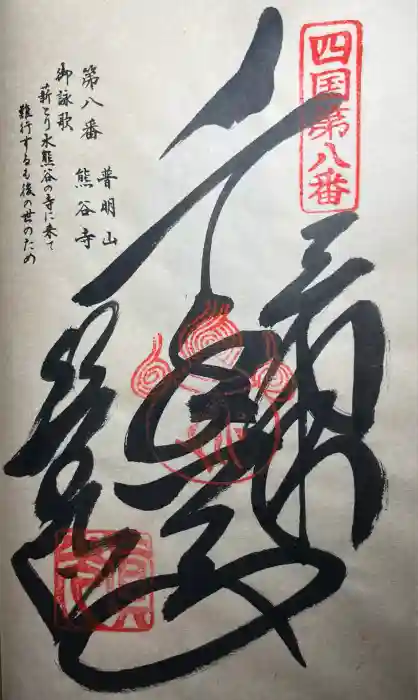 四国第八番
奉納
千手大士
熊谷寺
第八番 普明山
熊谷寺
御詠歌
薪とり水熊谷の寺に来て
難行するも後の世のため